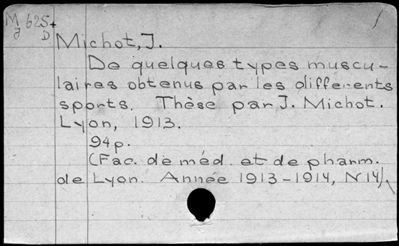 M 625.
J D
Michot, J.
De quelques types muscu-
laires obtenus par les différents
sports. Thèse par J. Michot.
Lyon, 1913.
94 p.
(Fac. de méd. et de pharm.
de Lyon. Année 1913-1914, N 14).